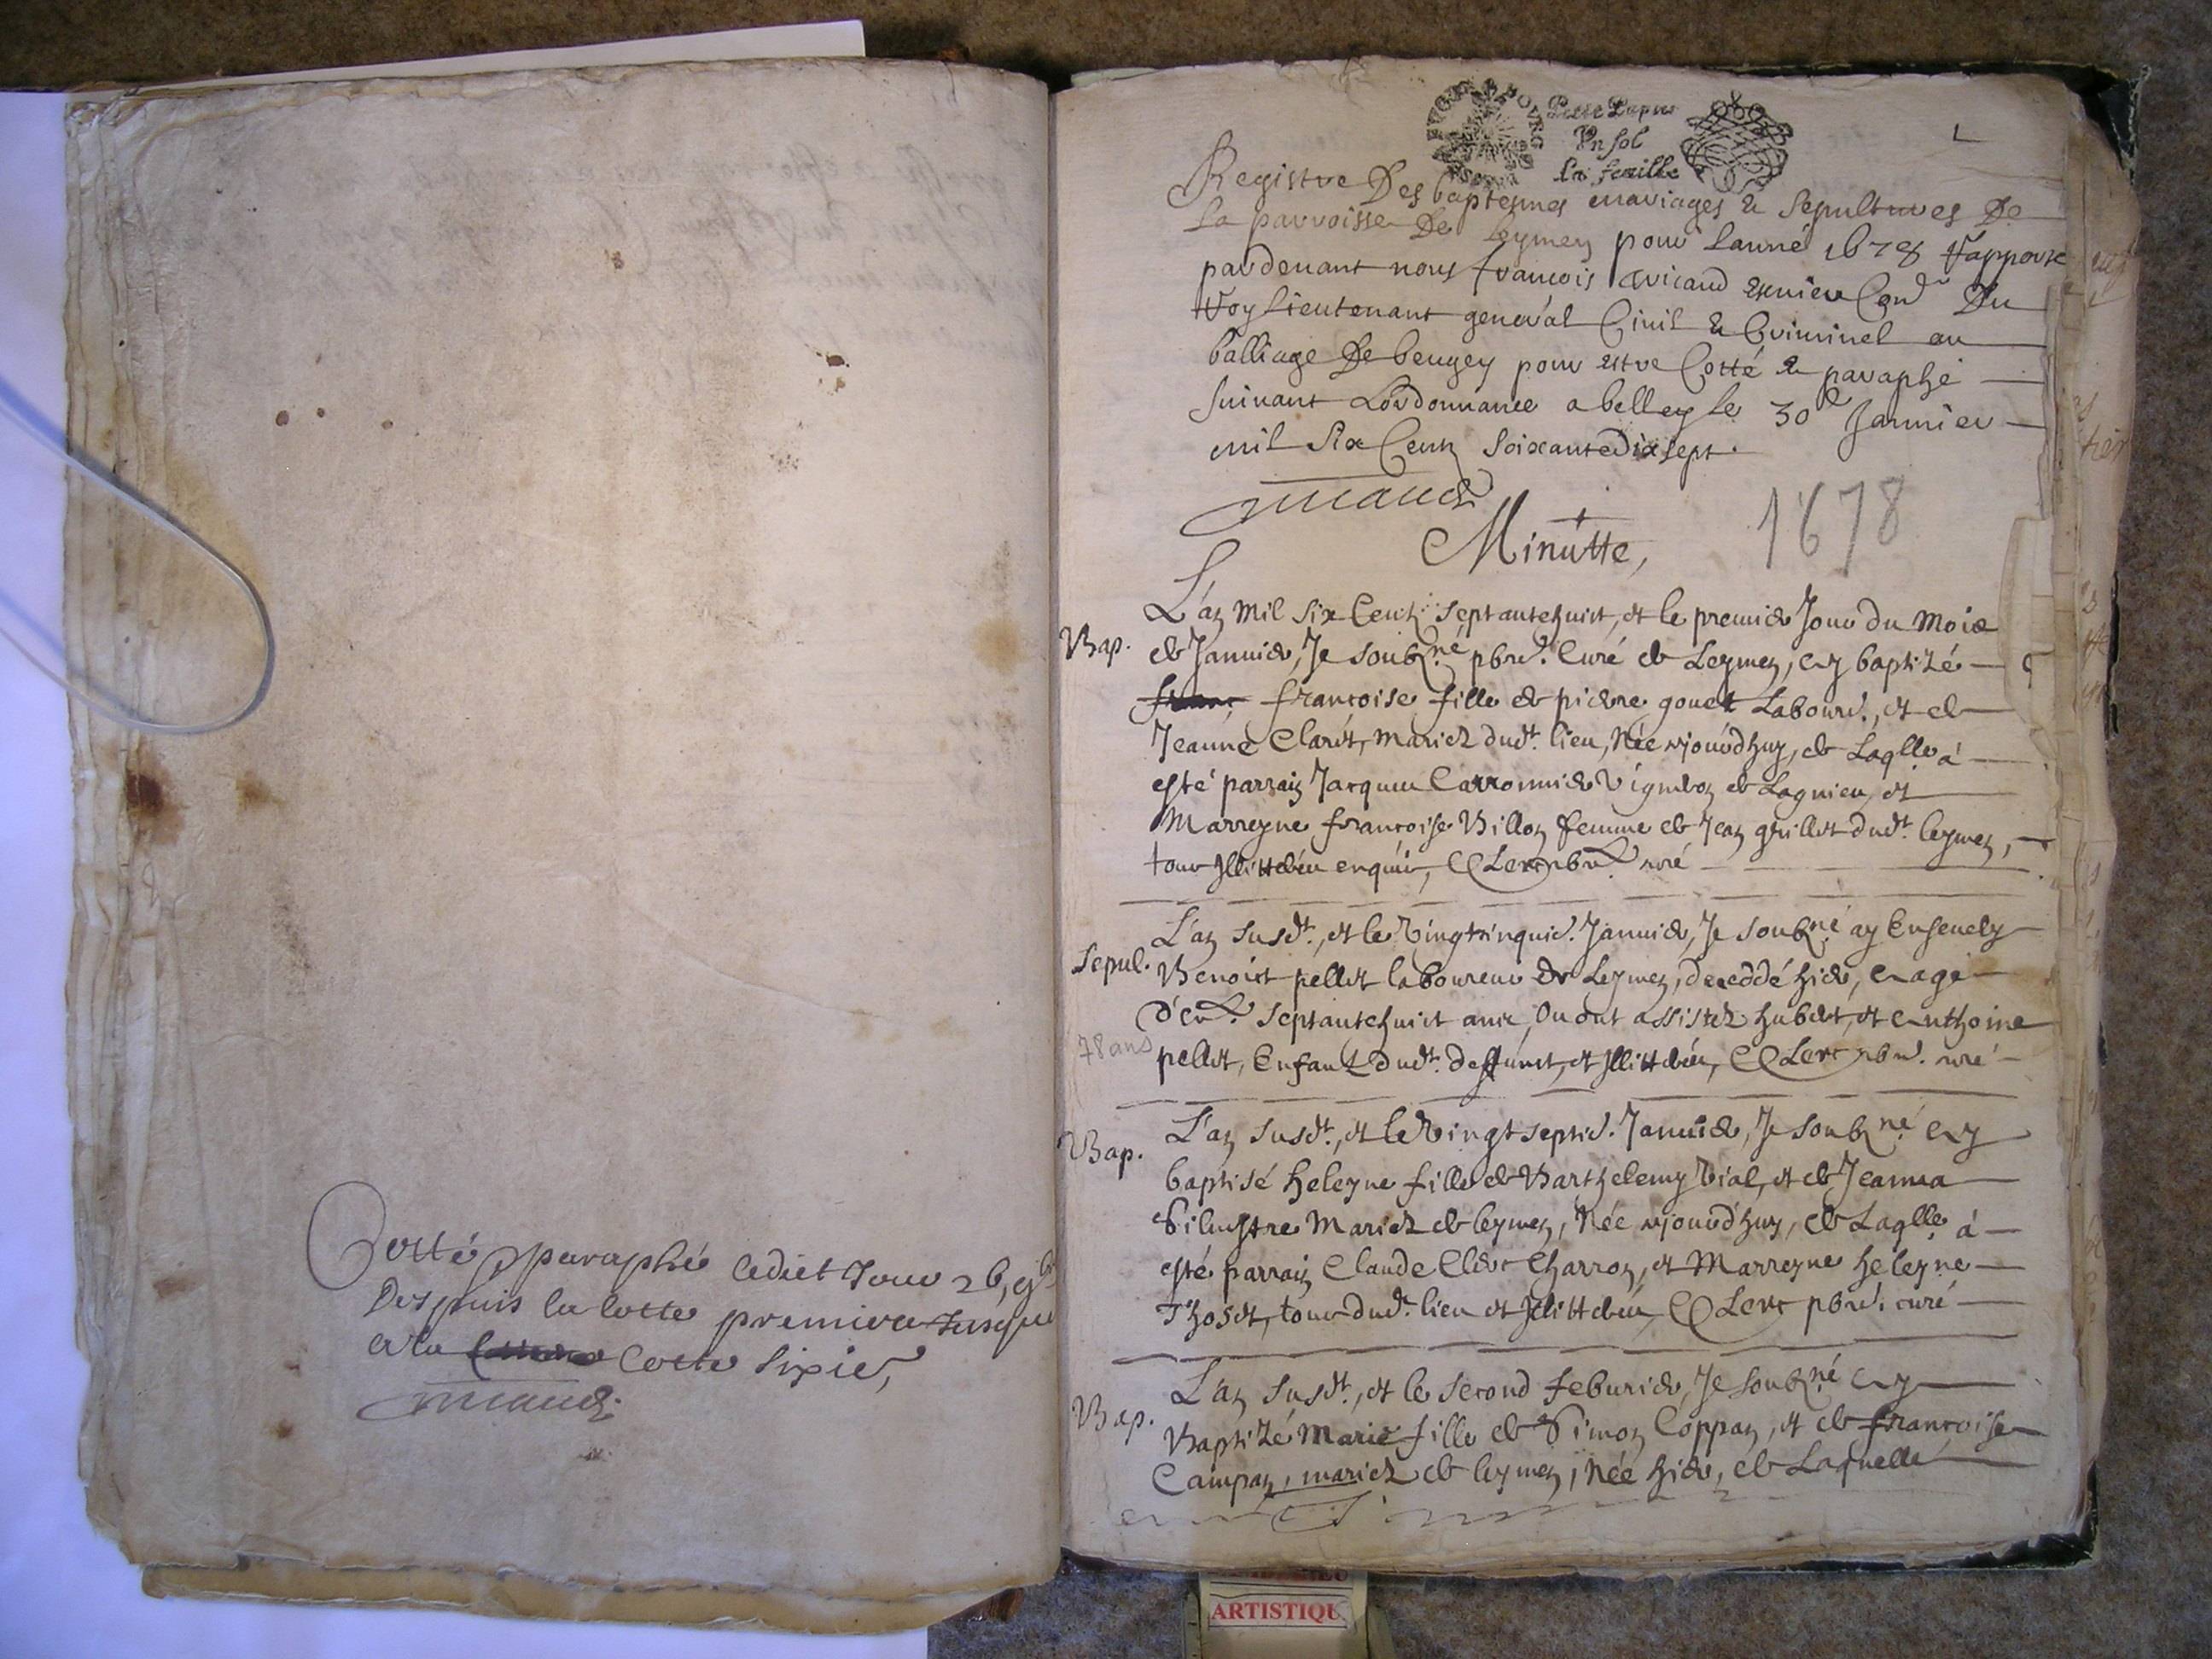 Cotté & paraphé ledict Jour
Despuis la cotte premiere Jusque
a la cotte sixie,
BUGEY
Petit Papier
Un sol
la feuille
1
Registre Des baptesmes mariages & sepultures De
la parroisse De Leymen pour lanné 1678 rapporté
pardevant nous francois
Roy lieutenant general Civil & Criminel au
balliage De beugey pour estre Cotté & paraphé
suivant Lordonnance a belley le 30e Janvier
mil Six Centz Soixante Dix sept.
Minutte,
1678
Bap.
L'an Mil Six Centz septantehuict, et le premier Jour du Mois
de Janvier, Je soubz.né pbre. Curé de Leymen, ay baptizé
francoise fille de pierre gouet Labour., et de
Jeanne Claret, mariez dud.t lieu, Née ajourd'huy, de Laqlle. à
esté parrain Jacques Carronnier Vigneron de Lagnieu, et
Marreyne francoise Billon femme de Jean grillet dud.t leymen,
tous Illitterés enquis, Clerc pbre. curé
Sepul.
L'an susd.t, et le Vingtcinquie. Janvier, Je soubz.né ay Ensevely
Benoict pellet laboureur de Leymen, deceddé hier, eagé
d'env. septantehuict ans, Ou ont assistez hubert, et Anthoine
78 ans
pellet, Enfantz dud.t deffunct, et Illitterés, Clerc pbre. curé
Bap.
L'an susd.t, et le Vingt septie. Janvier, Je soubz.né ay
baptisé heleyne fille de Barthelemy Vial, et de Jeanna
Silvestre Mariez de leymen, Née ajourd'huy, de Laqlle. à
esté parrain Claude Clerc Charron, et Marreyne heleyne
Thoset, tous dud.t lieu et Illitterés, Clerc pbre. curé
Bap.
L'an susd.t, et le second febvrier, Je soubz.né ay
Baptizé Marie fille de Simon Coppan, et de francoise
Campan, mariez de leymen, Née hier, de Laquelle
ARTISTIQU